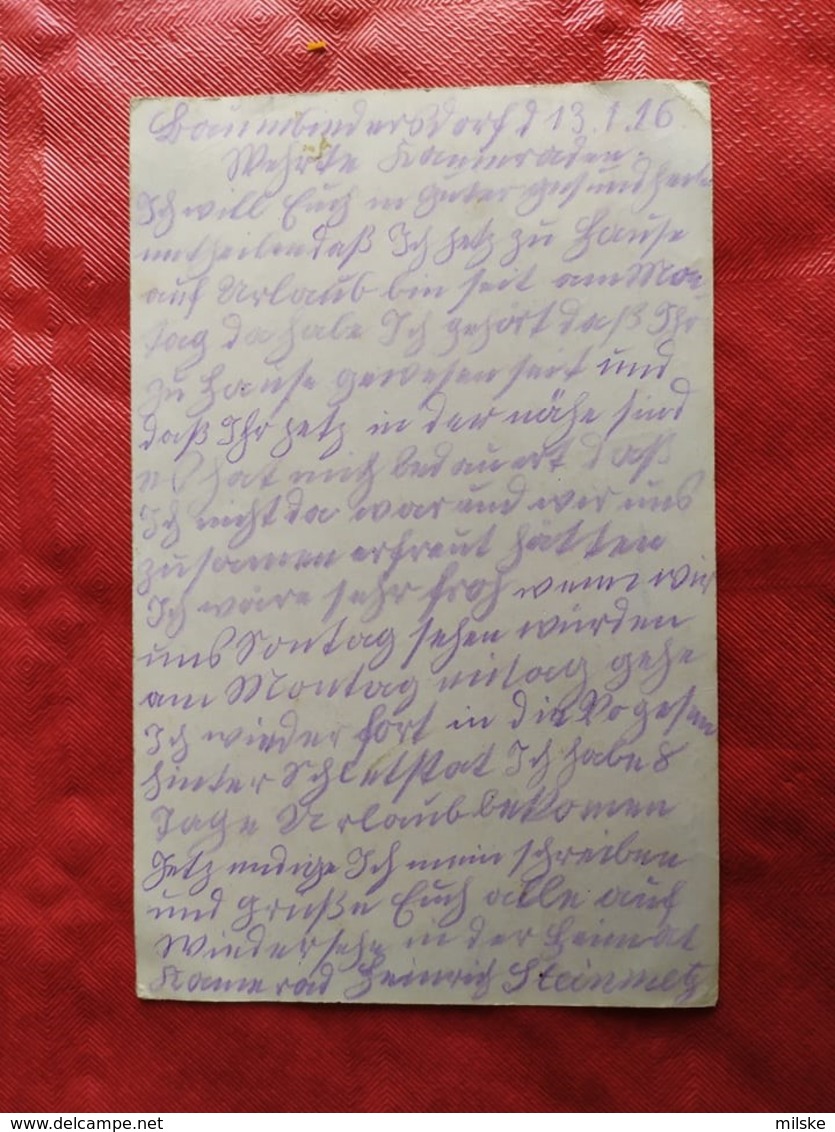 d 13.1.16
Wehrte Kammraden.
Ich will Euch in guter gesundheit
mitheilen daß Ich jetz zu Hause
auf Urlaub bin seit am Mon
tag da habe Ich gehört daß Ihr
zu Hause gewesen seit und
daß Ihr jetz in der nähe sind
es hat mich bedauert daß
Ich nicht da war und wir uns
zusamen erfreut hätten
Ich wäre sehr froh wenn wir
uns Sontag sehen würden
am Montag mitag gehe
Ich wieder fort in die Vogesen
hinter Schletstat Ich habe 8
Tage Urlaub bekomen
Jetz endige Ich mein schreiben
und gruße Euch alle auf
Wiedersehe in der Heimat
Kamerad Heinrich Steinmetz
delcampe.net
milske